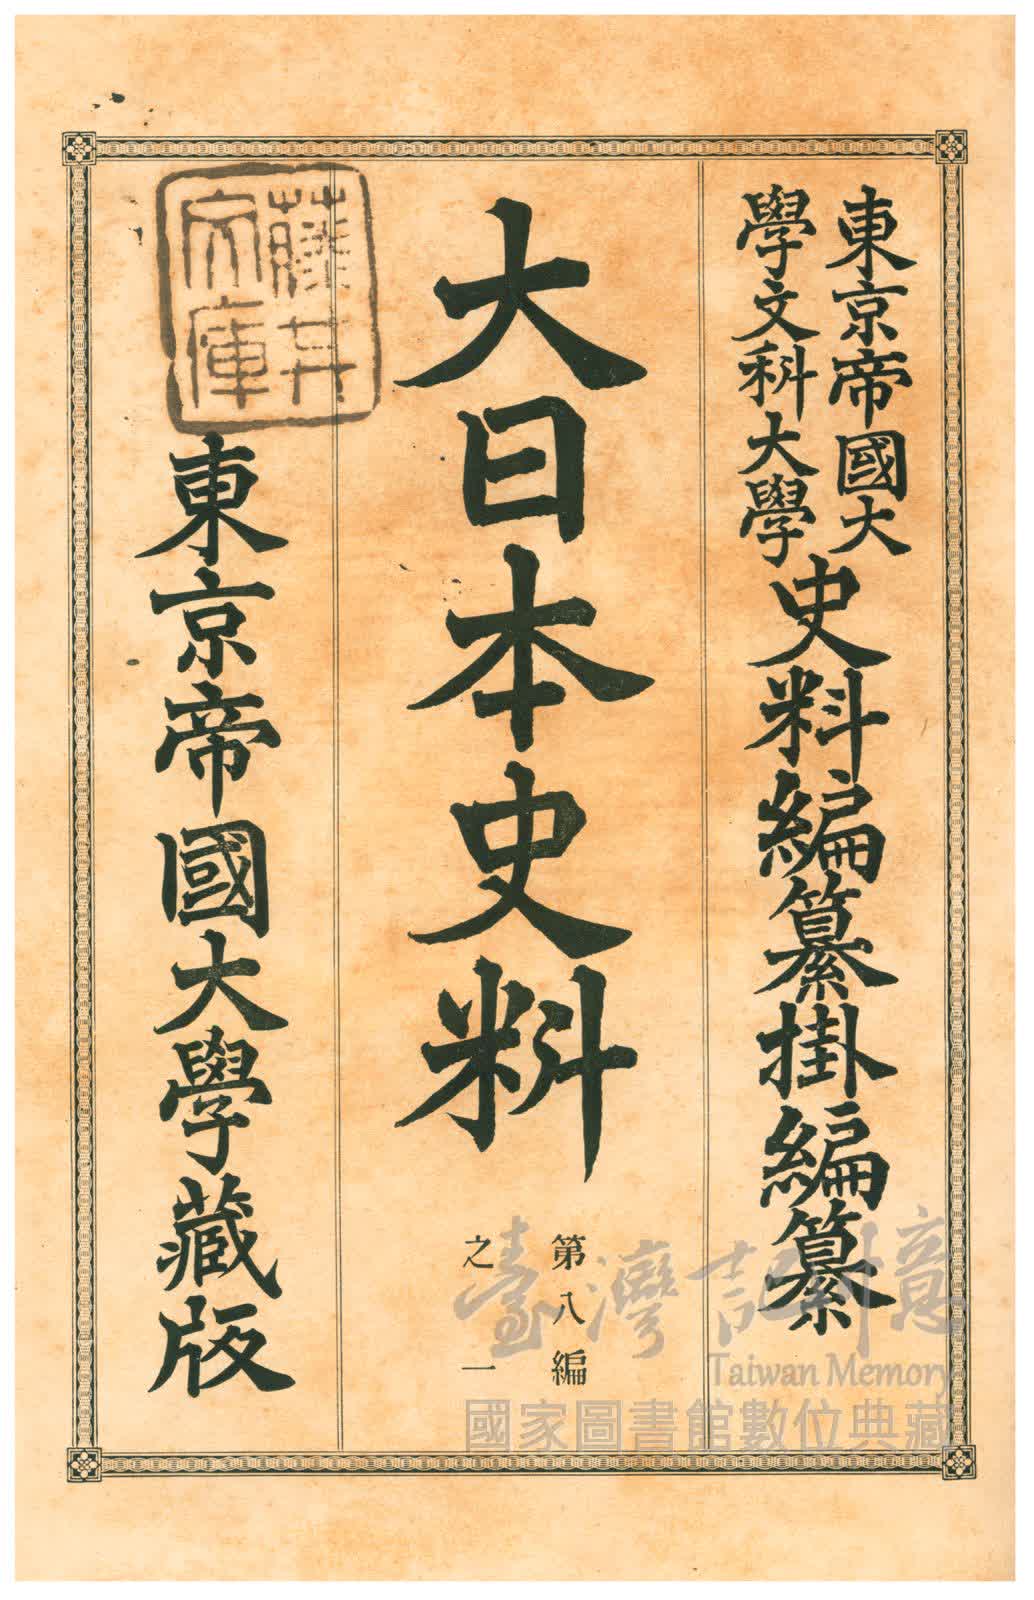 東京帝國大
學文科大學
史料編纂掛編纂
大日本史料
第八編
之一
東京帝國大學藏版
藤井文庫
臺灣記憶
Taiwan Memory
國家圖書館數位典藏